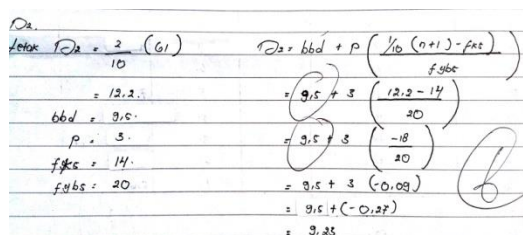 D2.
Letak D2 = 2/10 (61)
= 12,2.
bbd = 9,5.
p = 3.
fks = 14.
fybs = 20
D2 = bbd + p ( 1/10 (n+1) - fks / fybs )
= 9,5 + 3 ( 12,2 - 14 / 20 )
= 9,5 + 3 ( -18 / 20 )
= 9,5 + 3 (-0,09)
= 9,5 + (-0,27)
= 9,23